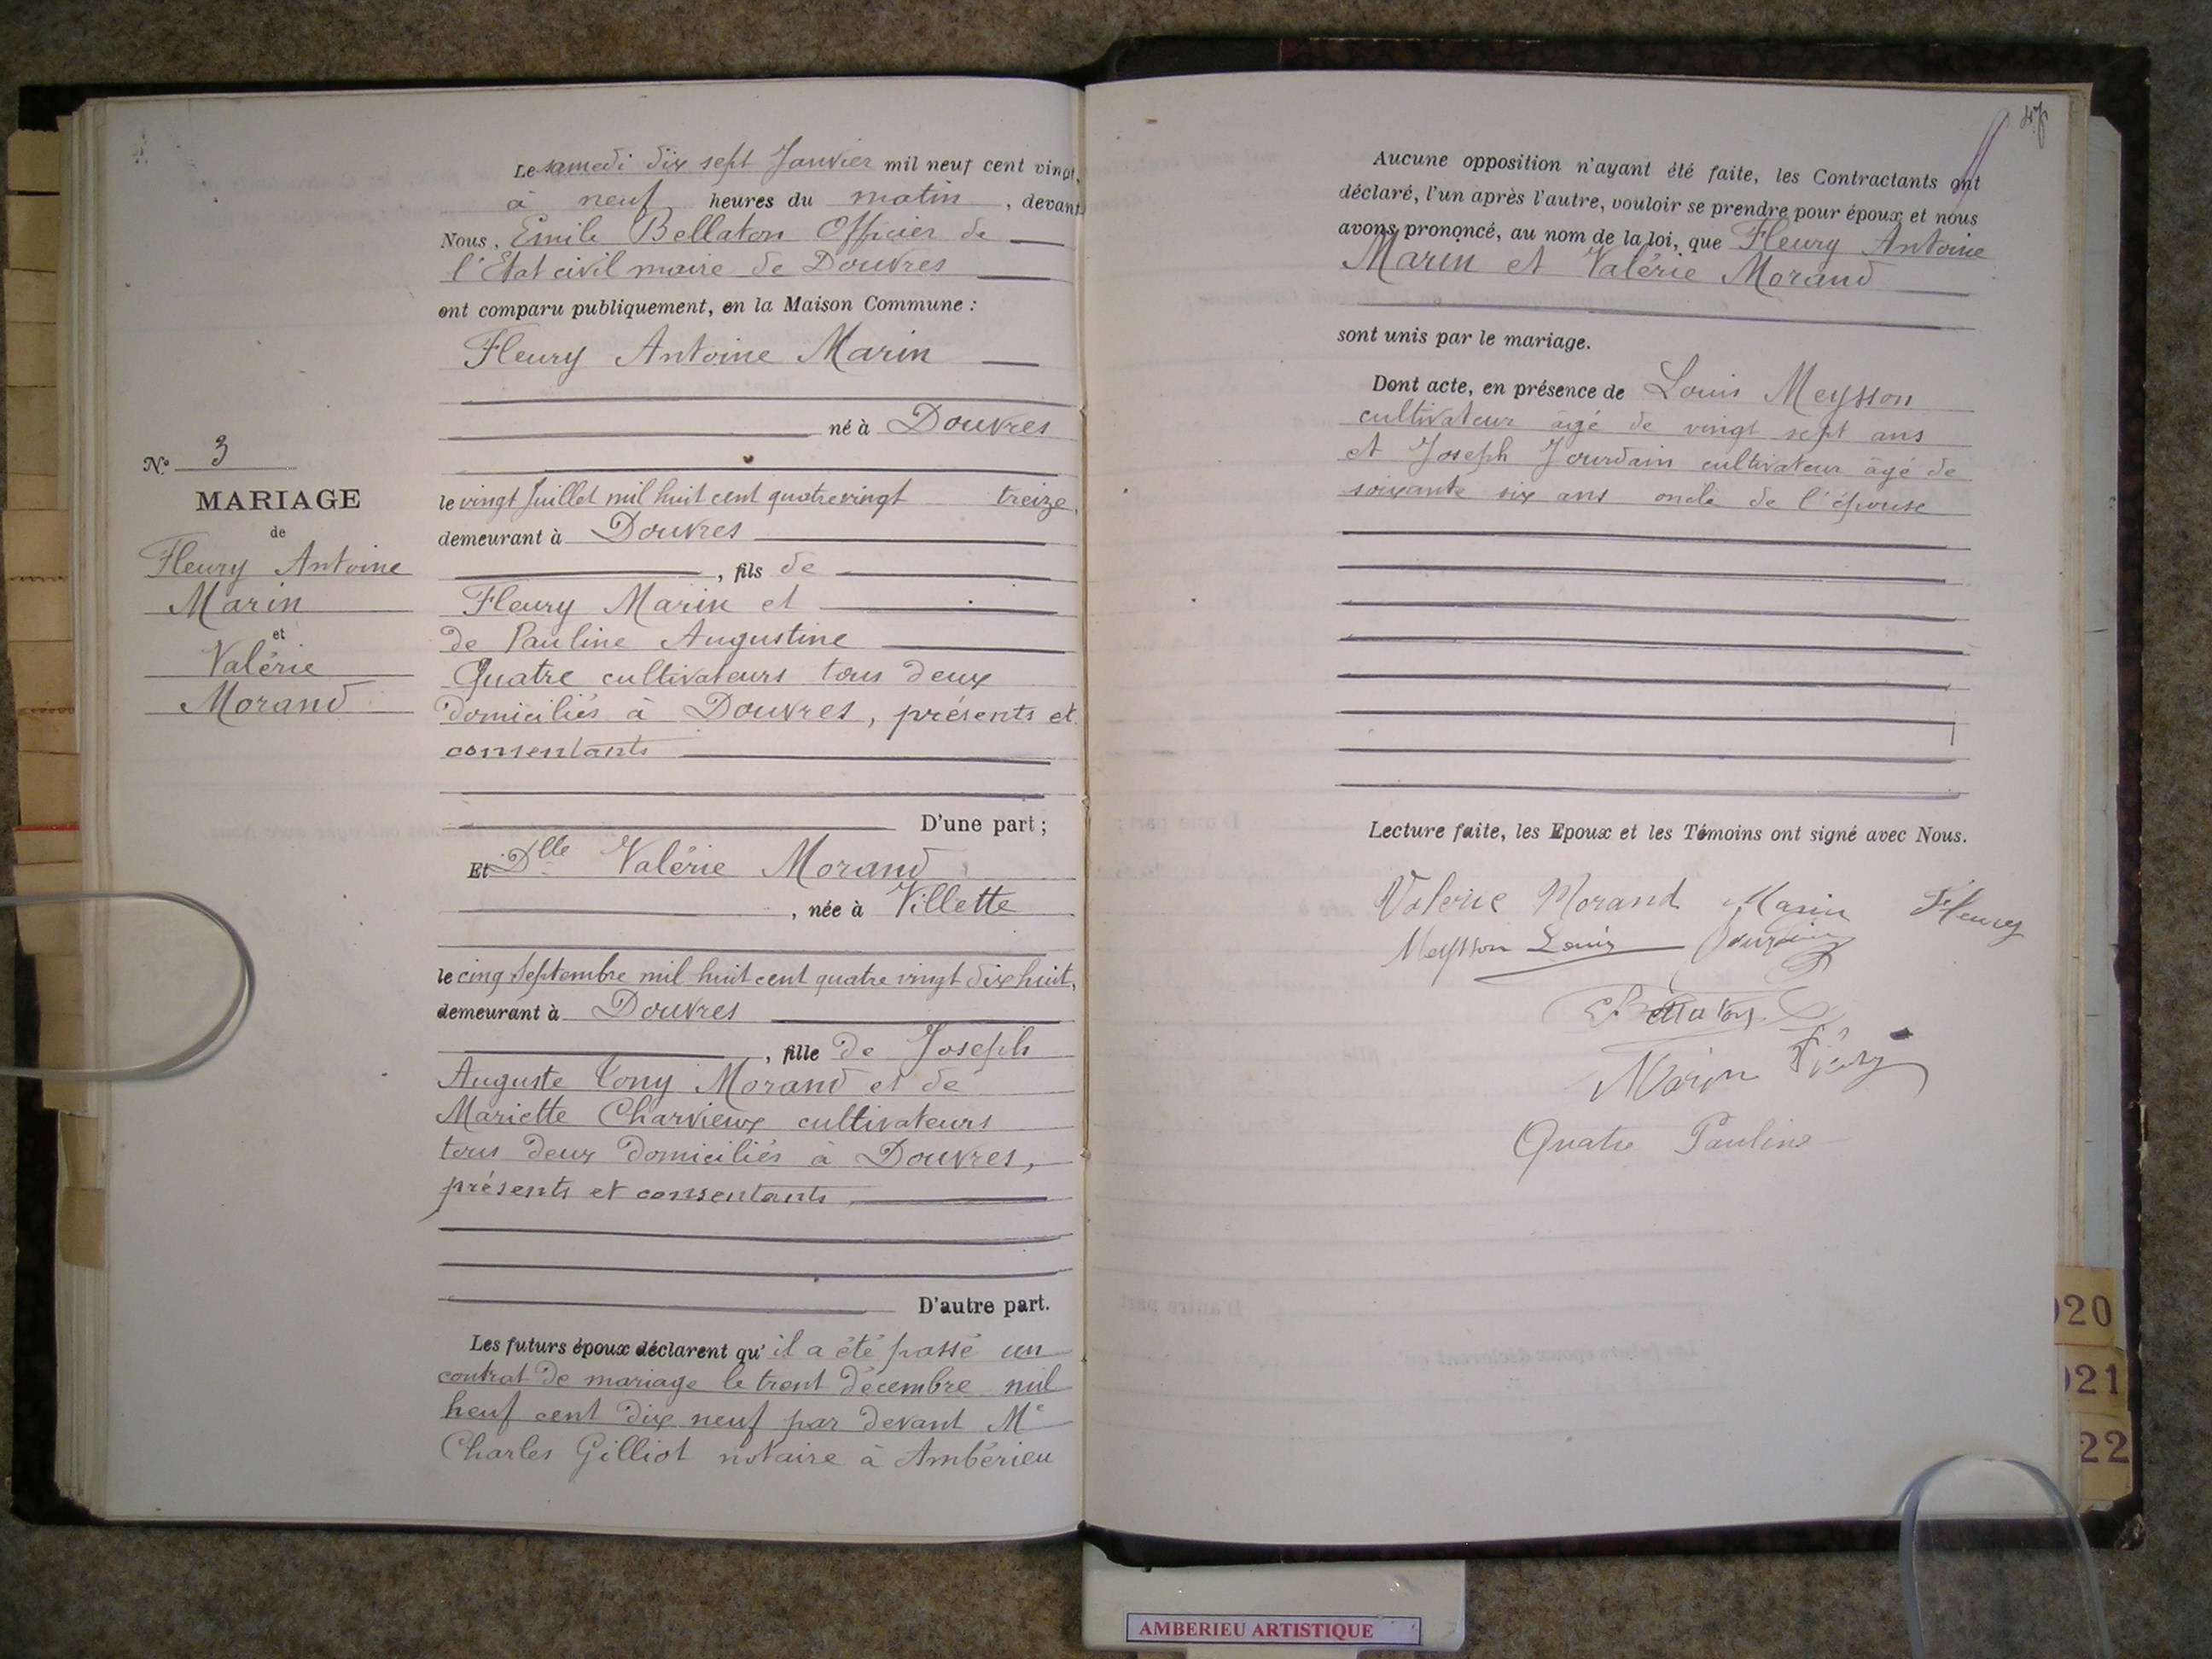 Le samedi dix sept Janvier mil neuf cent vingt,
à neuf heures du matin, devant
Nous, Emile Bellaton Officier de
l'Etat civil maire de Douvres
ont comparu publiquement, en la Maison Commune :
Fleury Antoine Marin
né à Douvres
le vingt Juillet mil huit cent quatre vingt treize,
demeurant à Douvres
, fils de
Fleury Marin et
de Pauline Augustine
Quatre cultivateurs tous deux
domiciliés à Douvres, présents et
consentants
D'une part ;
Et Dlle Valérie Morand
, née à Villette
le cinq Septembre mil huit cent quatre vingt dix huit,
demeurant à Douvres
, fille de Joseph
Auguste Tony Morand et de
Mariette Charvieux cultivateurs
tous deux domiciliés à Douvres,
présents et consentants
D'autre part.
Les futurs époux déclarent qu'il a été passé un
contrat de mariage le trent décembre mil
neuf cent dix neuf par devant Me
Charles Gilliot notaire à Ambérieu
N° 3
MARIAGE
de
Fleury Antoine
Marin
et
Valérie
Morand
47
Aucune opposition n'ayant été faite, les Contractants ont
déclaré, l'un après l'autre, vouloir se prendre pour époux et nous
avons prononcé, au nom de la loi, que Fleury Antoine
Marin et Valérie Morand
sont unis par le mariage.
Dont acte, en présence de Louis Meysson
cultivateur âgé de vingt sept ans
et Joseph Jourdain cultivateur âgé de
soixante six ans oncle de l'épouse
Lecture faite, les Epoux et les Témoins ont signé avec Nous.
Valerie Morand Marin Fleury
Meysson Louis Jourdain
E. Bellaton
Marin Fleury
Quatre Pauline
020
021
22
AMBERIEU ARTISTIQUE